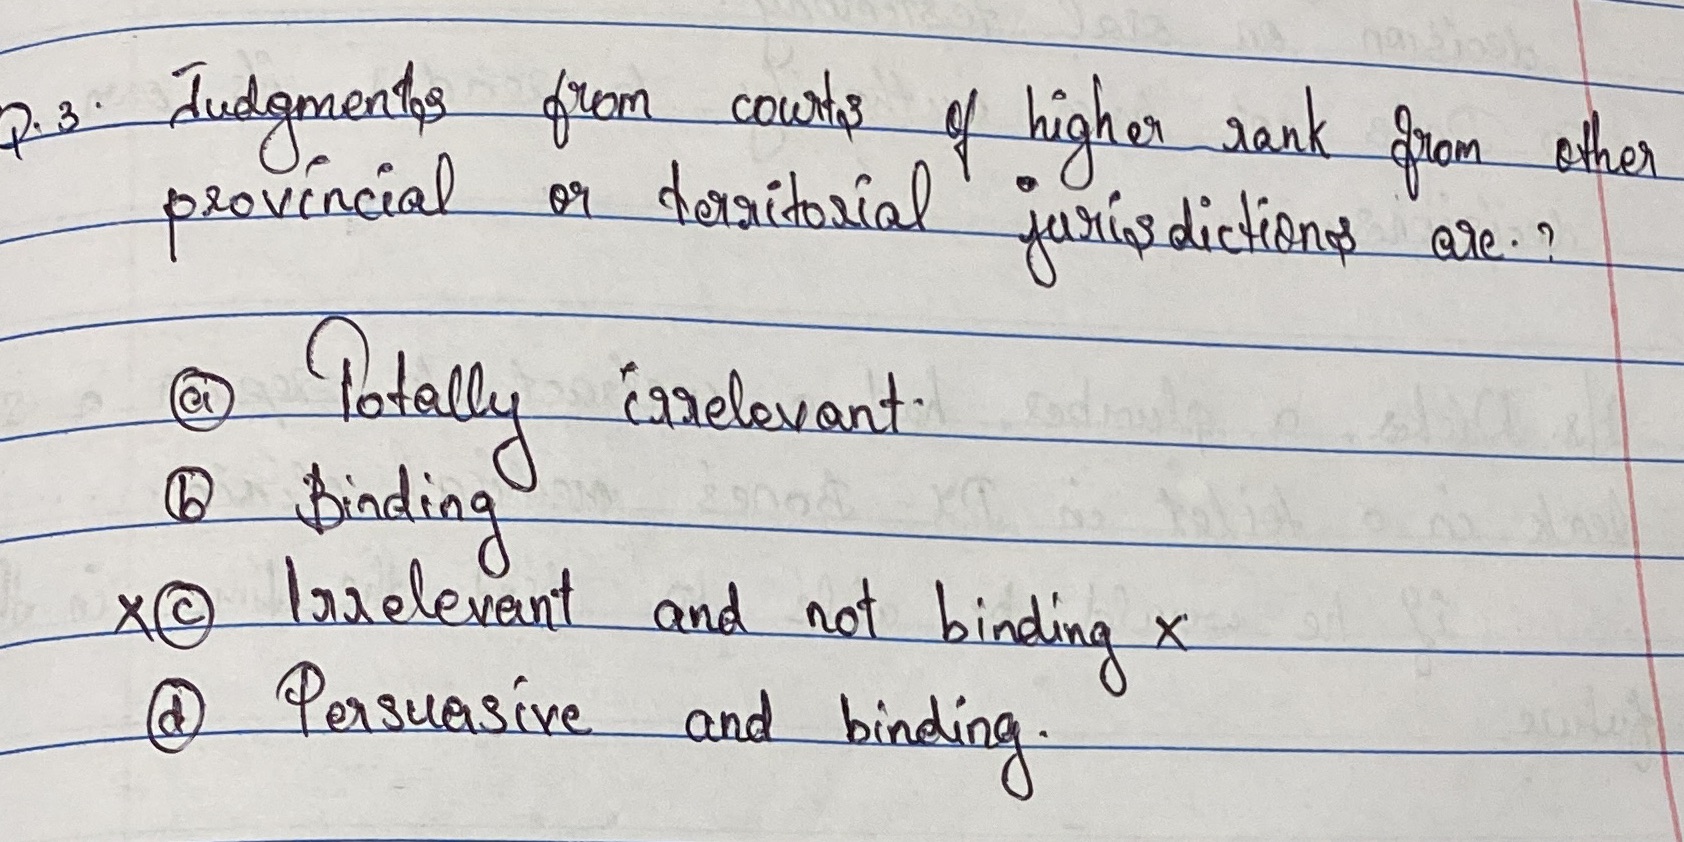 Q.3. Judgments from courts of higher rank from other
provincial or territorial jurisdictions are.?
ⓐ Totally irrelevant.
ⓑ Binding
xⓒ Irrelevant and not binding x
ⓓ Persuasive and binding.